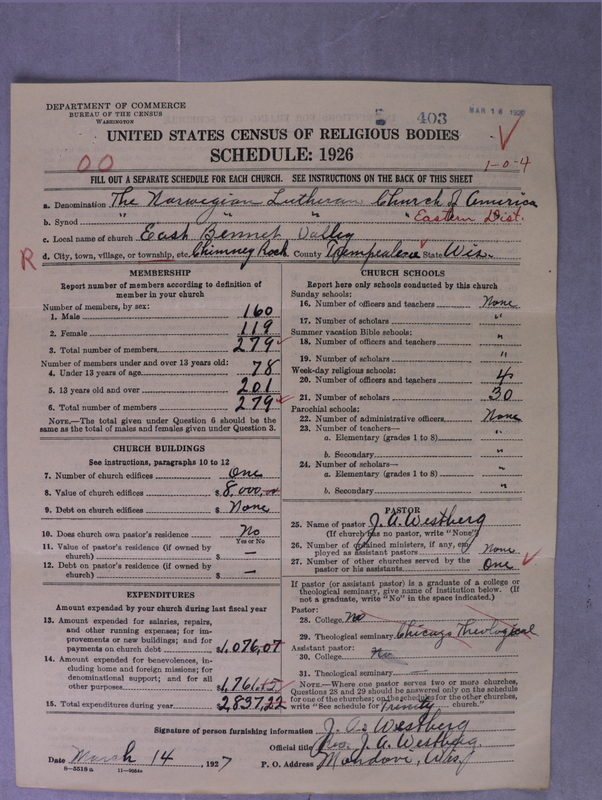 DEPARTMENT OF COMMERCE
BUREAU OF THE CENSUS
WASHINGTON
5 403
MAR 16
UNITED STATES CENSUS OF RELIGIOUS BODIES
SCHEDULE: 1926
00
1-0-4
FILL OUT A SEPARATE SCHEDULE FOR EACH CHURCH. SEE INSTRUCTIONS ON THE BACK OF THIS SHEET
a. Denomination The Norwegian Lutheran Church of America
b. Synod " " " " Eastern Dist.
c. Local name of church East Bennet Valley
R d. City, town, village, or township, etc. Chimney Rock County Trempealeau State Wis.
MEMBERSHIP
Report number of members according to definition of member in your church
Number of members, by sex:
1. Male 160
2. Female 119
3. Total number of members 279
Number of members under and over 13 years old:
4. Under 13 years of age 78
5. 13 years old and over 201
6. Total number of members 279
NOTE.—The total given under Question 6 should be the same as the total of males and females given under Question 3.
CHURCH BUILDINGS
See instructions, paragraphs 10 to 12
7. Number of church edifices One
8. Value of church edifices $ 8,000.00
9. Debt on church edifices $ None
10. Does church own pastor's residence? No
Yes or No
11. Value of pastor's residence (if owned by church) $ —
12. Debt on pastor's residence (if owned by church) $ —
EXPENDITURES
Amount expended by your church during last fiscal year
13. Amount expended for salaries, repairs, and other running expenses; for improvements or new buildings; and for payments on church debt $1,076,07
14. Amount expended for benevolences, including home and foreign missions; for denominational support; and for all other purposes $1,761.15
15. Total expenditures during year 2,837,22
CHURCH SCHOOLS
Report here only schools conducted by this church
Sunday schools:
16. Number of officers and teachers None
17. Number of scholars "
Summer vacation Bible schools:
18. Number of officers and teachers "
19. Number of scholars "
Week-day religious schools:
20. Number of officers and teachers 4
21. Number of scholars 30
Parochial schools:
22. Number of administrative officers None
23. Number of teachers—
a. Elementary (grades 1 to 8) "
b. Secondary "
24. Number of scholars—
a. Elementary (grades 1 to 8) "
b. Secondary "
PASTOR
25. Name of pastor J. A. Westberg
(If church has no pastor, write "None")
26. Number of ordained ministers, if any, employed as assistant pastors None
27. Number of other churches served by the pastor or his assistants One
If pastor (or assistant pastor) is a graduate of a college or theological seminary, give name of institution below. (If not a graduate, write "No" in the space indicated.)
Pastor:
28. College No
29. Theological seminary Chicago Theological
Assistant pastor:
30. College No
31. Theological seminary —
NOTE.—Where one pastor serves two or more churches, Questions 28 and 29 should be answered only on the schedule for one of the churches; on the schedule for the other churches, write "See schedule for Trinity church."
Signature of person furnishing information J. A. Westberg
Official title Rev. J. A. Westberg.
Date March 14, 1927 P. O. Address Mondovi, Wis.